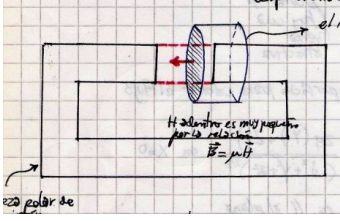 el
H adentro es muy pequeño
por la relación
B⃗ = μH⃗
eza polar de